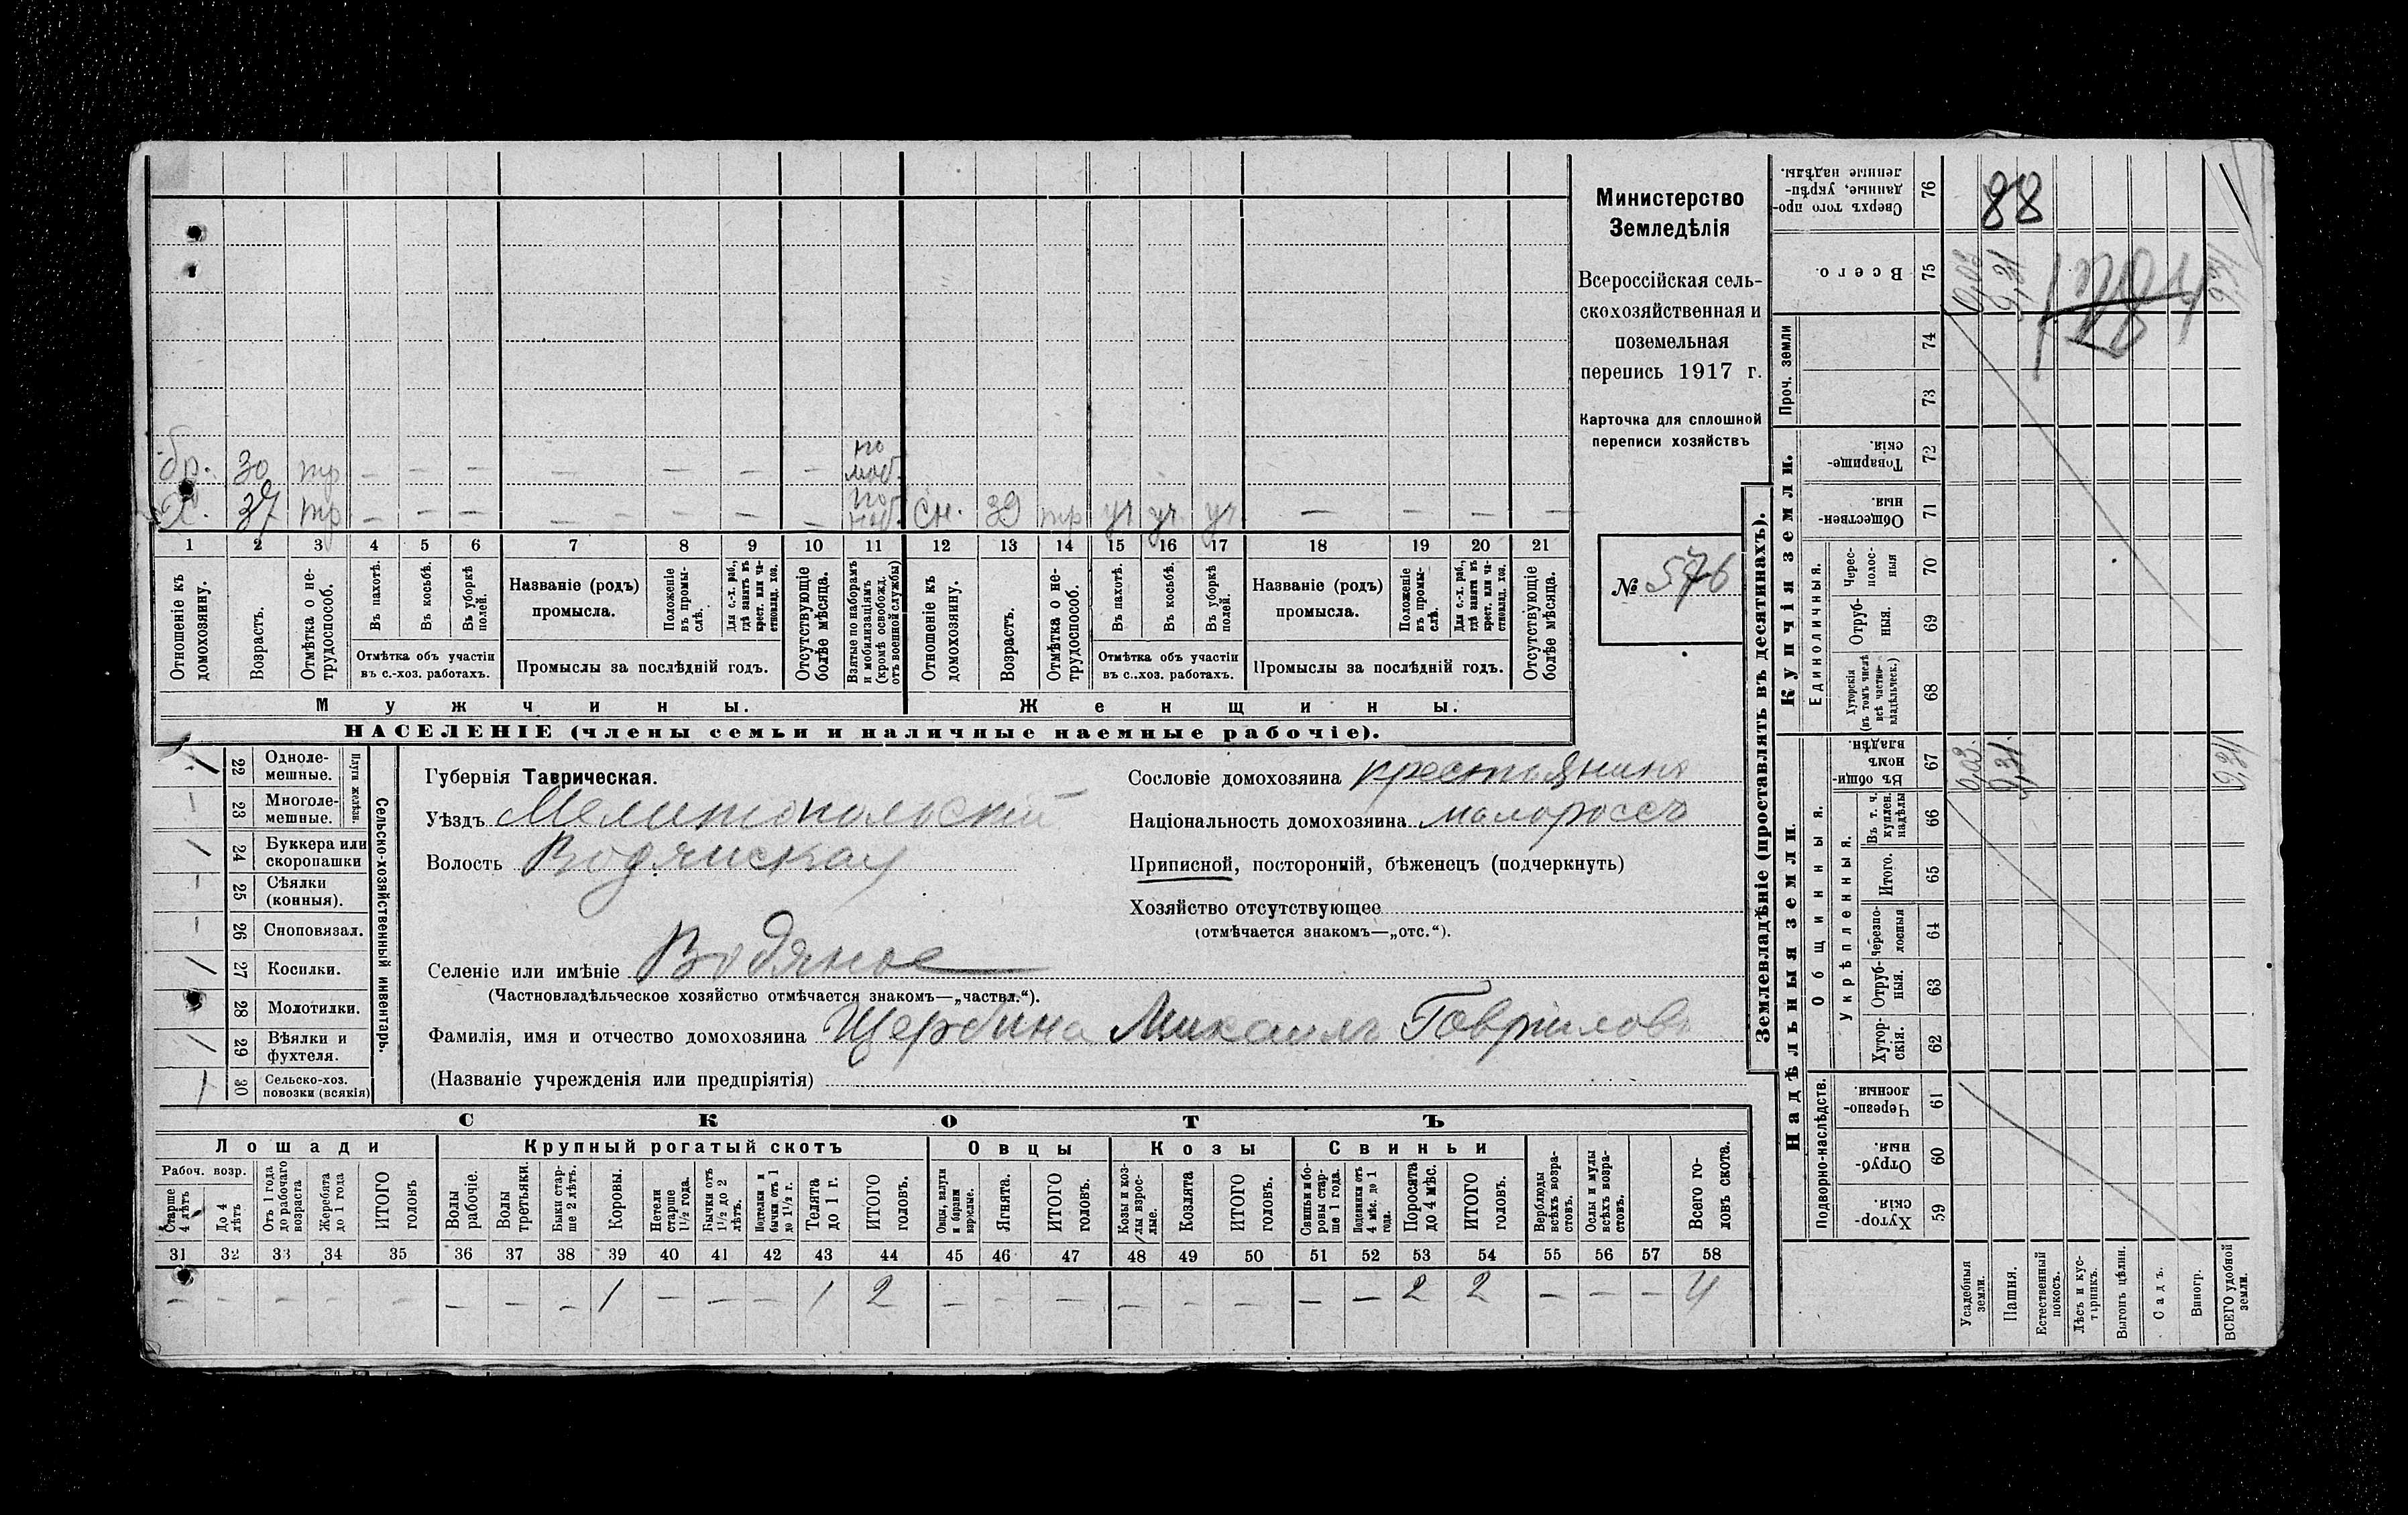 Министерство
Земледѣлія
Всероссійская сель-
скохозяйственная и
поземельная
перепись 1917 г.
Карточка для сплошной
переписи хозяйствъ
№ 576
бр. 30 тр — — — — — — — по моб.
Х. 37 тр — — — — — — — по моб. сн. 39 тр уч уч. уч — — — —
1 2 3 4 5 6 7 8 9 10 11 12 13 14 15 16 17 18 19 20 21
Отношеніе къ домохозяину.
Возрастъ.
Отмѣтка о не-трудоспособ.
Въ пахотѣ.
Въ косьбѣ.
Въ уборкѣ полей.
Отмѣтка объ участіи
въ с.-хоз. работахъ.
Названіе (родъ)
промысла.
Положеніе въ промы-слѣ.
Для с.-х. раб., гдѣ занятъ въ крест. или ча-стновлад. хоз.
Промыслы за послѣдній годъ.
Отсутствующіе болѣе мѣсяца.
Взятые по наборамъ и мобилизаціямъ (кромѣ освобожд. отъ военной службы)
Отношеніе къ домохозяину.
Возрастъ.
Отмѣтка о не-трудоспособ.
Въ пахотѣ.
Въ косьбѣ.
Въ уборкѣ полей.
Отмѣтка объ участіи
въ с..хоз. работахъ.
Названіе (родъ)
промысла.
Положеніе въ промы-слѣ.
Для с.-х. раб., гдѣ занятъ въ крест. или ча-стновлад. хоз.
Промыслы за послѣдній годъ.
Отсутствующіе болѣе мѣсяца.
Мужчины. Женщины.
НАСЕЛЕНІЕ (члены семьи и наличные наемные рабочіе).
Сельско-хозяйственный инвентарь.
Плуги желѣзн.
/ 22 Одноле-мешные.
— 23 Многоле-мешные.
/ 24 Буккера или скоропашки
— 25 Сѣялки (конныя).
— 26 Сноповязал.
/ 27 Косилки.
28 Молотилки.
/ 29 Вѣялки и фухтеля.
/ 30 Сельско-хоз. повозки (всякія)
Губернія Таврическая.
Уѣздъ Мелитопольскій
Волость Водянская
Селеніе или имѣніе Водяное
(Частновладѣльческое хозяйство отмѣчается знакомъ—„частвл.“).
Фамилія, имя и отчество домохозяина Щербина Михаилъ Гаврилов
(Названіе учрежденія или предпріятія)
Сословіе домохозяина крестьянинъ
Національность домохозяина малороссъ
Приписной, посторонній, бѣженецъ (подчеркнуть)
Хозяйство отсутствующее
(отмѣчается знакомъ—„отс.“).
СКОТЪ
Лошади Крупный рогатый скотъ Овцы Козы Свиньи
Рабоч. возр.
Старше 4 лѣтъ
До 4 лѣтъ
Отъ 1 года до рабочаго возраста
Жеребята до 1 года
ИТОГО головъ
Волы рабочіе.
Волы третьяки.
Быки стар-ше 2 лѣтъ.
Коровы.
Нетели старше 1½ года.
Бычки отъ 1½ до 2 лѣтъ.
Подтелки и бычки отъ 1 до 1½ г.
Телята до 1 г.
ИТОГО головъ.
Овцы, валухи и бараны взрослые.
Ягнята.
ИТОГО головъ.
Козы и коз-лы взрос-лые.
Козлята
ИТОГО головъ.
Свиньи и бо-ровы стар-ше 1 года.
Подсвинки отъ 4 мѣс. до 1 года.
Поросята до 4 мѣс.
ИТОГО головъ.
Верблюды всѣхъ возра-стовъ.
Ослы и мулы всѣхъ возра-стовъ.
Всего го-ловъ скота.
31 32 33 34 35 36 37 38 39 40 41 42 43 44 45 46 47 48 49 50 51 52 53 54 55 56 57 58
— — — — — — — — 1 — — — 1 2 — — — — — — — — 2 2 — — — 4
Землевладѣніе (проставлять въ десятинахъ).
Купчія земли.
Надѣльныя земли.
Сверхъ того про-данные, укрѣп-ленные надѣлы. 76
88
Всего. 75 9,31 9,31
Проч. земли 74
73
Товарище-скія. 72
Обществен-ныя. 71
Единоличныя.
Черес-полос-ныя 70
Отруб-ныя. 69
Хуторскія (въ томъ числѣ всѣ частно-владѣльческ.) 68
Общинныя.
Въ общин-номъ владѣн. 67 0,03. 9,31. 9,34
Укрѣпленныя.
Въ т. ч. куплен. надѣлы 66
Итого. 65
Черезпо-лосныя 64
Отруб-ныя. 63
Хутор-скія. 62
Подворно-наслѣдств.
Черезпо-лосныя. 61
Отруб-ныя. 60
Хутор-скія. 59
Усадебныя земли.
Пашня.
Естественный покосъ.
Лѣсъ и кус-тарникъ.
Выгонъ цѣлин.
Садъ.
Виногр.
ВСЕГО удобной земли.